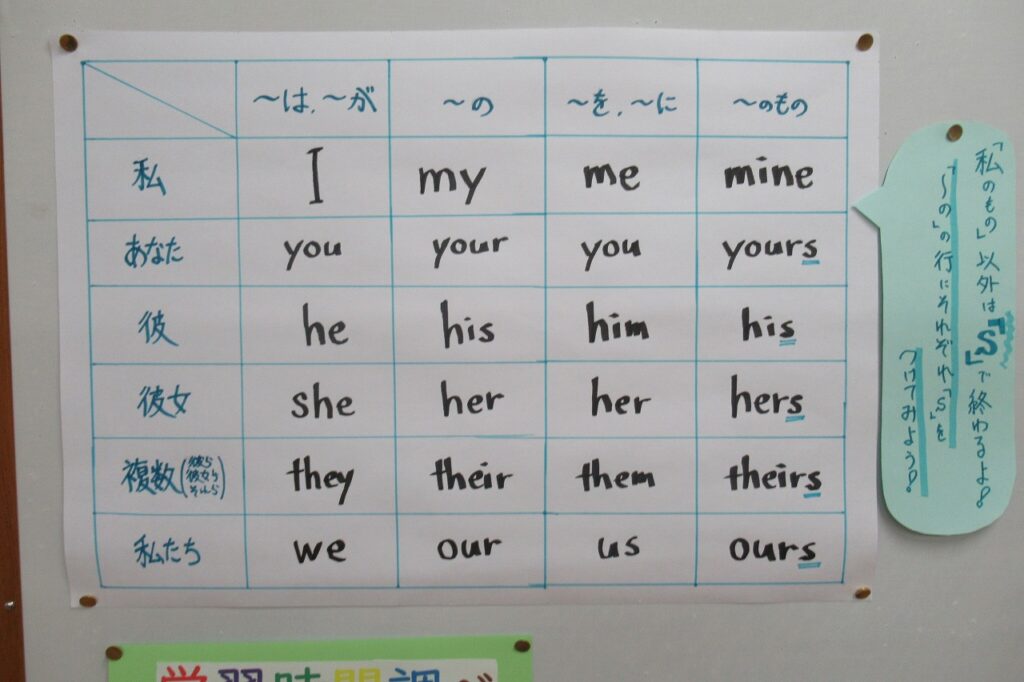 ～は、～が ～の ～を、～に ～のもの
私 I my me mine
あなた you your you yours
彼 he his him his
彼女 she her her hers
複数(彼ら 彼女ら それら) they their them theirs
私たち we our us ours
「私のもの」以外は「S」で終わるよ!
「～の」の行にそれぞれ「s」を
つけてみよう!
学習時間調べ